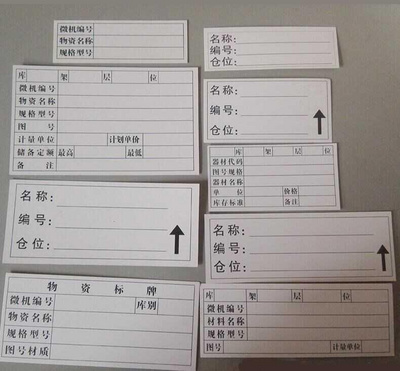 微机编号
物资名称
规格型号
名称:
编号:
仓位:
库 架 层 位
微机编号
物资名称
规格型号
图 号
计量单位 计划单价
储备定额 最高 最低
备 注
名称:
编号:
仓位:
库 架 层 位
器材代码
图号规格
器材名称
单 位 价格
库存标准 备注
名称:
编号:
仓位:
名称:
编号:
仓位:
物 资 标 牌
微机编号 库别
物资名称
规格型号
图号材质
库 架 层 位
微机编号
材料名称
规格型号
图号 计量单位